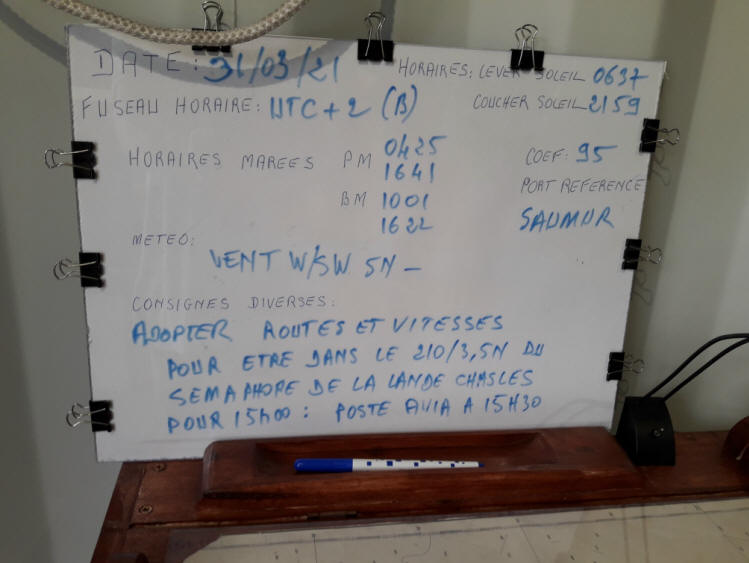 DATE: 31/03/21
HORAIRES: LEVER SOLEIL 0637
FUSEAU HORAIRE: UTC+2 (B)
COUCHER SOLEIL 2159
HORAIRES MAREES PM 0425
1641
BM 1001
1622
COEF: 95
PORT REFERENCE
SAUMUR
METEO:
VENT W/SW 5N –
CONSIGNES DIVERSES:
ADOPTER ROUTES ET VITESSES
POUR ETRE DANS LE 210/3,5N DU
SEMAPHORE DE LA LANDE CHASLES
POUR 15H00: POSTE AVIA A 15H30